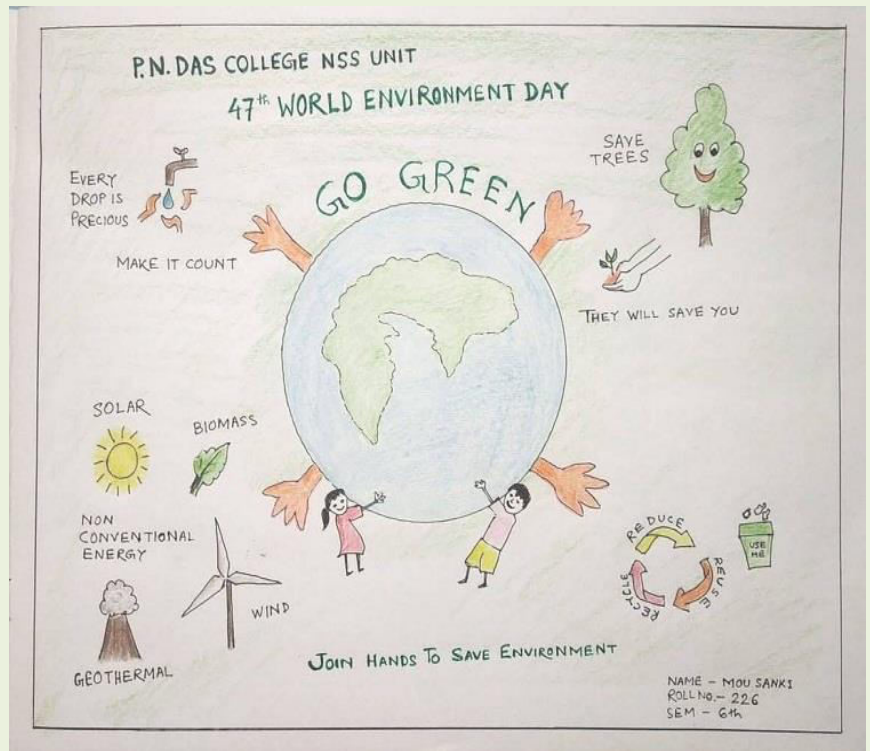 P.N. DAS COLLEGE NSS UNIT
47th WORLD ENVIRONMENT DAY
GO GREEN
EVERY
DROP IS
PRECIOUS
MAKE IT COUNT
SAVE
TREES
THEY WILL SAVE YOU
SOLAR
BIOMASS
NON
CONVENTIONAL
ENERGY
WIND
GEOTHERMAL
REDUCE
REUSE
RECYCLE
USE
ME
JOIN HANDS TO SAVE ENVIRONMENT
NAME – MOU SANKI
ROLL NO.– 226
SEM – 6th